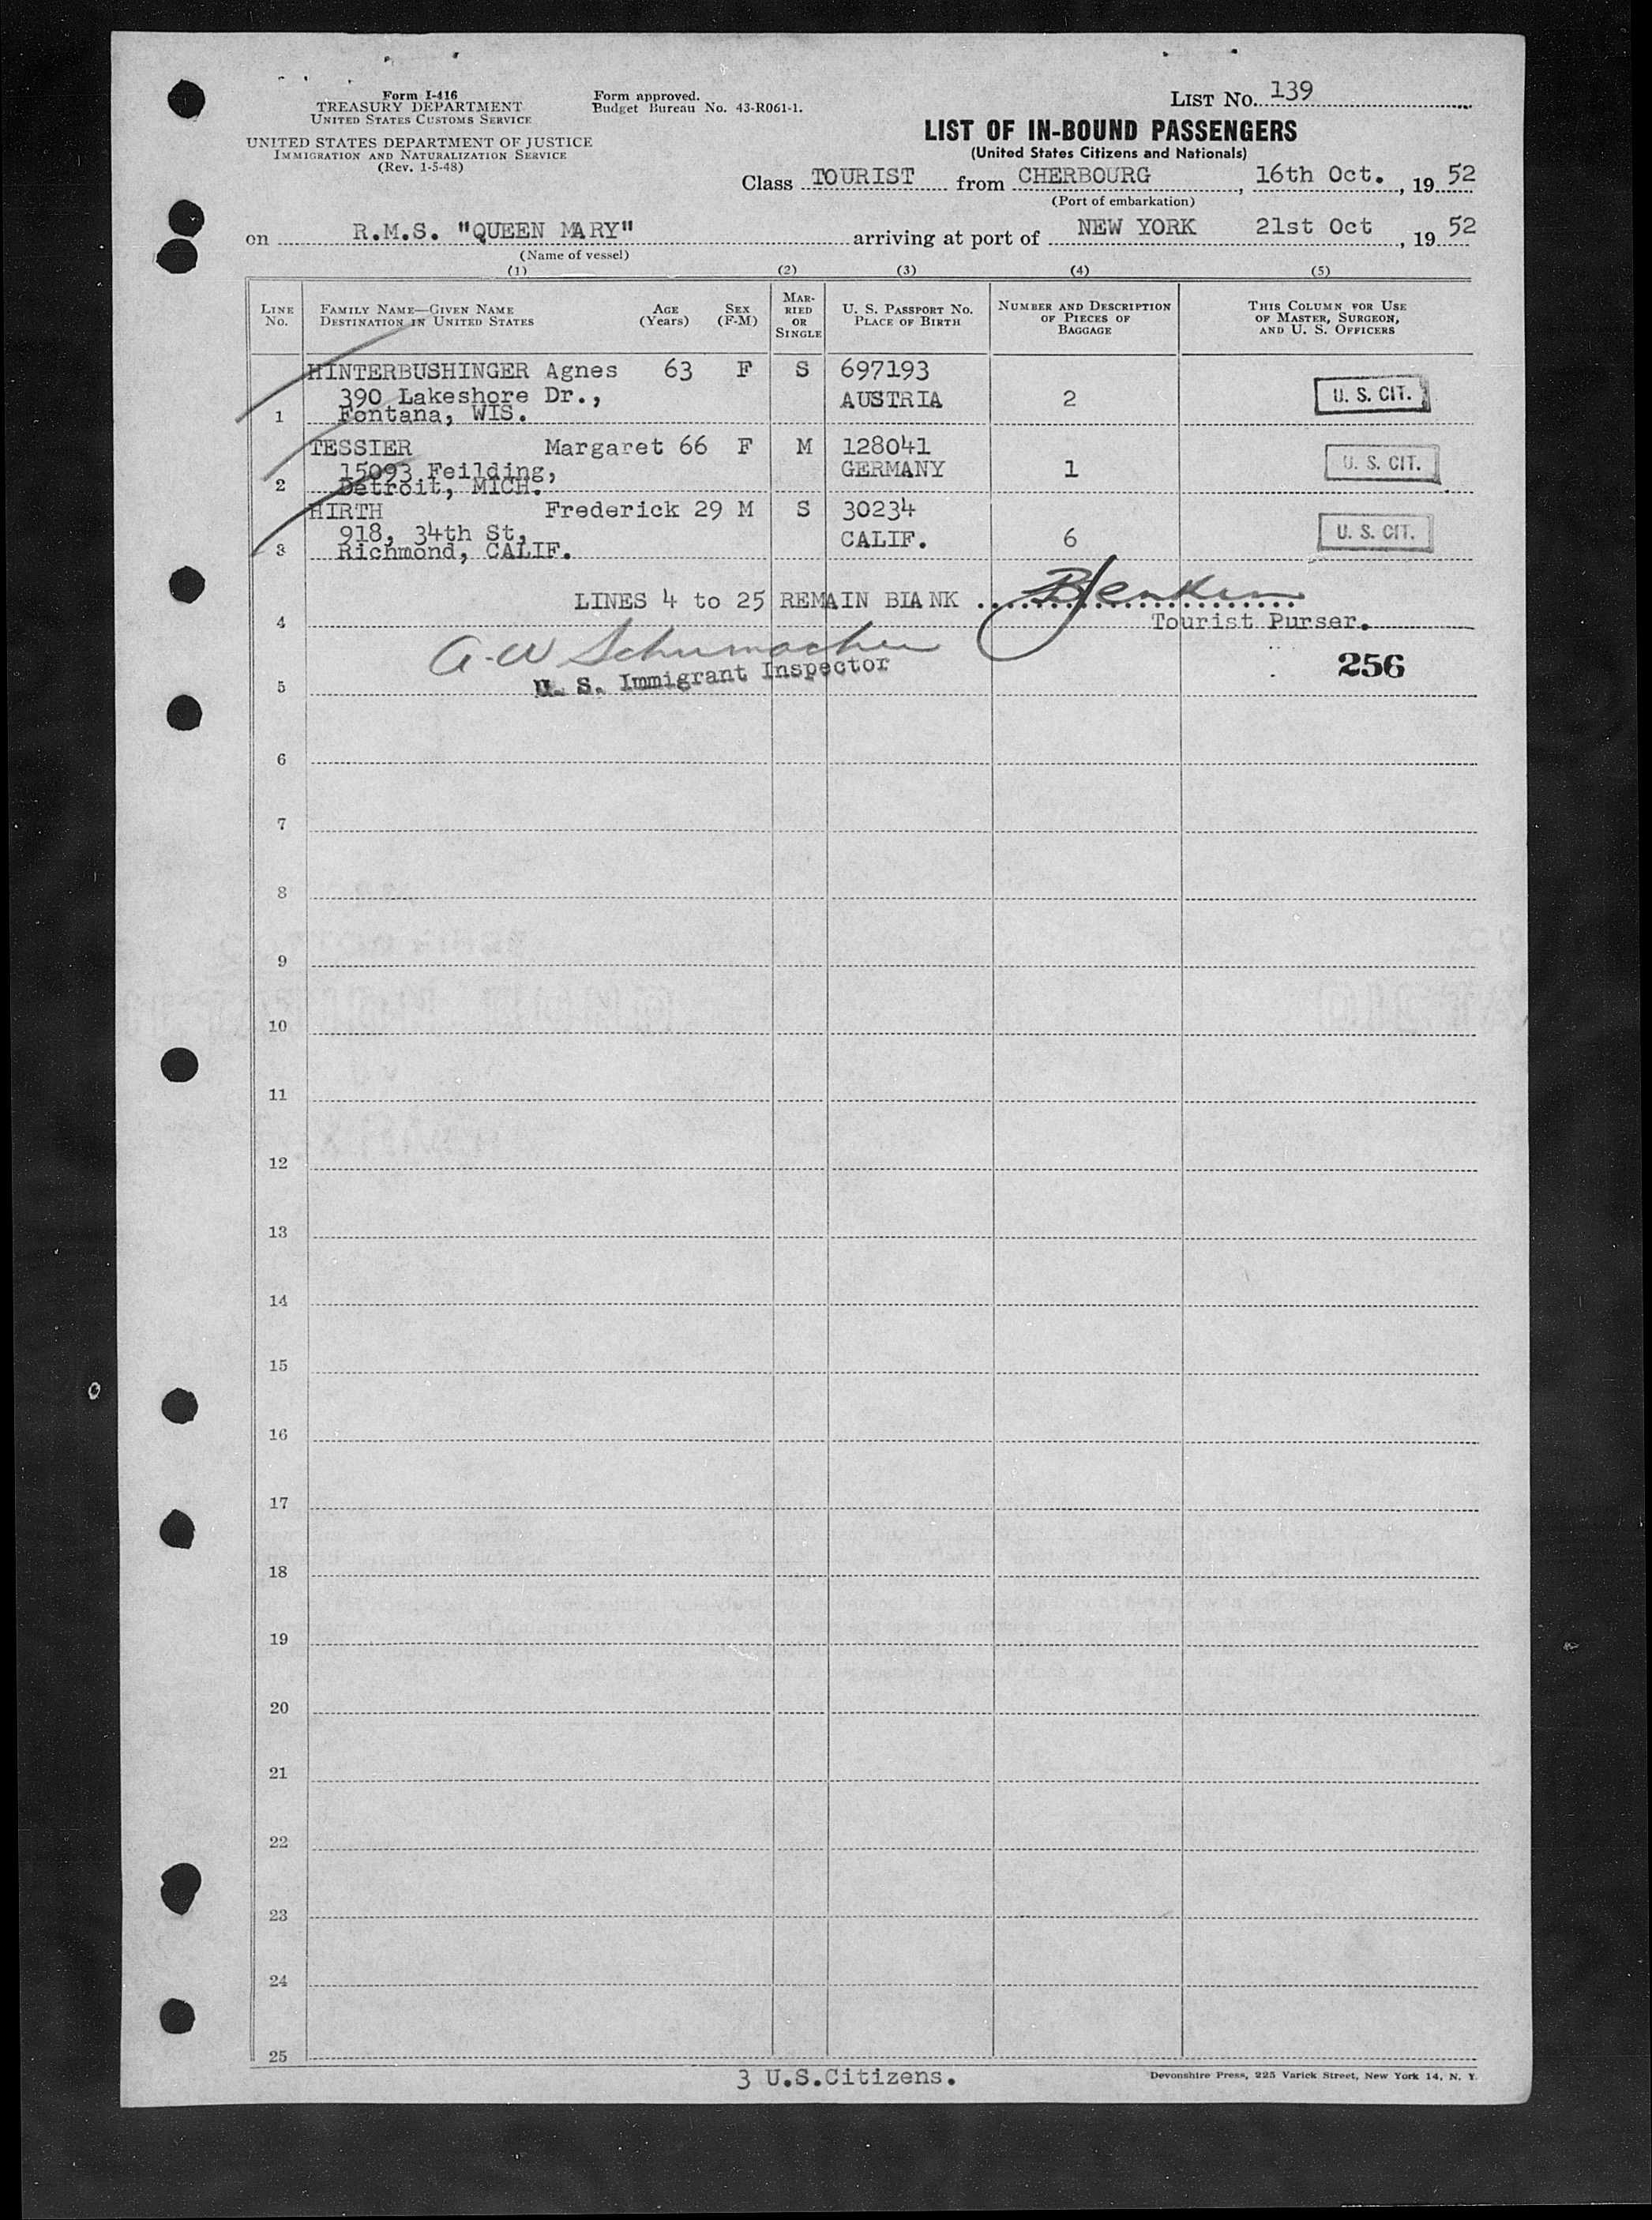 Form I-416
TREASURY DEPARTMENT
UNITED STATES CUSTOMS SERVICE
UNITED STATES DEPARTMENT OF JUSTICE
IMMIGRATION AND NATURALIZATION SERVICE
(Rev. 1-5-48)
Form approved.
Budget Bureau No. 43-R061-1.
LIST NO. 139
LIST OF IN-BOUND PASSENGERS
(United States Citizens and Nationals)
Class TOURIST from CHERBOURG, 16th Oct., 1952
(Port of embarkation)
on R.M.S. "QUEEN MARY" arriving at port of NEW YORK 21st Oct, 1952
(Name of vessel)
(1) (2) (3) (4) (5)
LINE No. FAMILY NAME—GIVEN NAME DESTINATION IN UNITED STATES AGE (Years) SEX (F-M) MARRIED OR SINGLE U. S. PASSPORT NO. PLACE OF BIRTH NUMBER AND DESCRIPTION OF PIECES OF BAGGAGE THIS COLUMN FOR USE OF MASTER, SURGEON, AND U. S. OFFICERS
HINTERBUSHINGER Agnes 63 F S 697193
390 Lakeshore Dr., AUSTRIA 2 U. S. CIT.
1 Fontana, WIS.
TESSIER Margaret 66 F M 128041
15093 Feilding, GERMANY 1 U. S. CIT.
2 Detroit, MICH.
HIRTH Frederick 29 M S 30234
918, 34th St, CALIF. 6 U. S. CIT.
3 Richmond, CALIF.
LINES 4 to 25 REMAIN BLANK
4 Tourist Purser.
A-W Schumacher
5 U. S. Immigrant Inspector 256
6
7
8
9
10
11
12
13
14
15
16
17
18
19
20
21
22
23
24
25
3 U.S.Citizens.
Devonshire Press, 225 Varick Street, New York 14, N. Y.